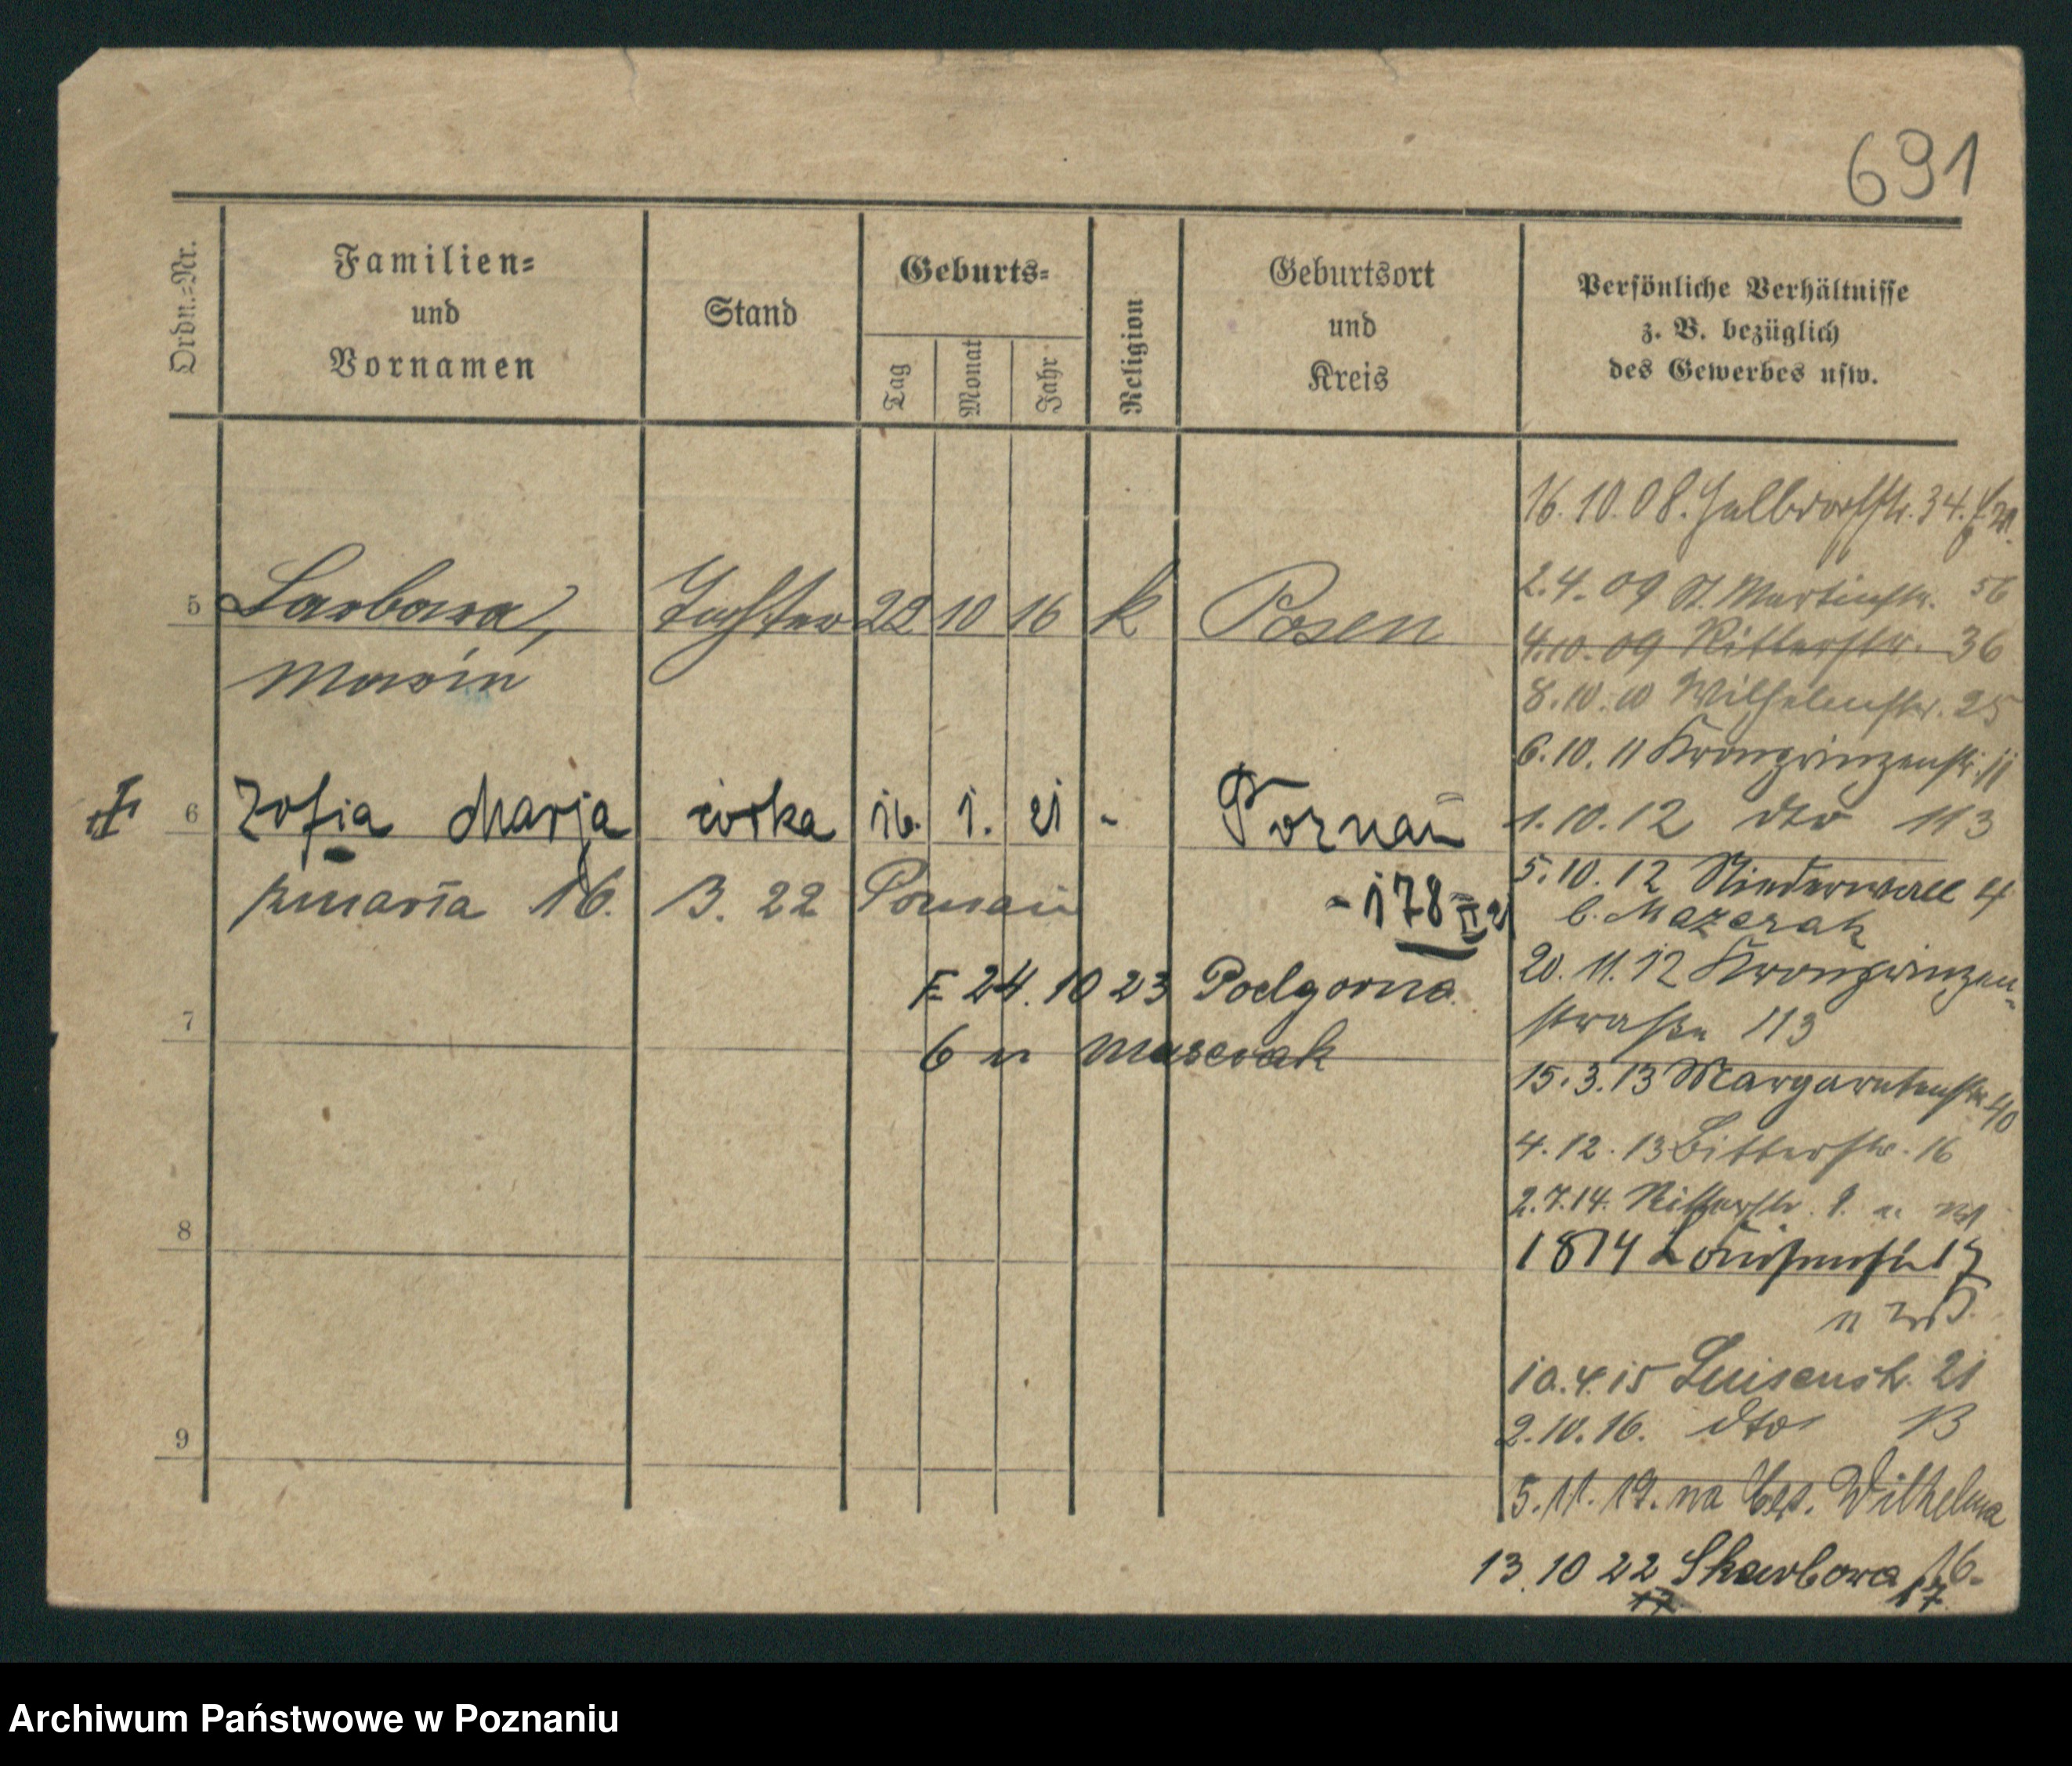 691
Ordn.=Nr.
Familien=
und
Vornamen
Stand
Geburts=
Tag
Monat
Jahr
Religion
Geburtsort
und
Kreis
Persönliche Verhältnisse
z. B. bezüglich
des Gewerbes usw.
5 Barbara, Tochter 22 10 16 k Posen
Maria
6 Zofia Marja córka 16. 1. 21 - Poznań
zmarła 16. 3. 22 Poznań
- 178 II 21
24. 10 23 Podgorna
7
6
8
9
16. 10. 08. Halbdorfstr. 34.
2. 4. 09 St. Martinstr. 56
4. 10. 09 Ritterstr. 36
8. 10. 10 Wilhelmstr. 25
6. 10. 11 Kronprinzenstr.
1. 10. 12 dto 113
5. 10. 12 Niederwall 4
b. Mazerak
20. 11. 12 Kronprinzen-
straße 113
15. 3. 13 Margaretenstr. 40
4. 12. 13 Bitterstr. 16
2. 7. 14. Ritterstr.
1 8 14 Louisenstr 17
10. 4. 15 Luisenstr. 21
2. 10. 16. dto 13
5. 11. 19. na Wilhelma
13. 10 22 Skarbowa 16-
17
Archiwum Państwowe w Poznaniu